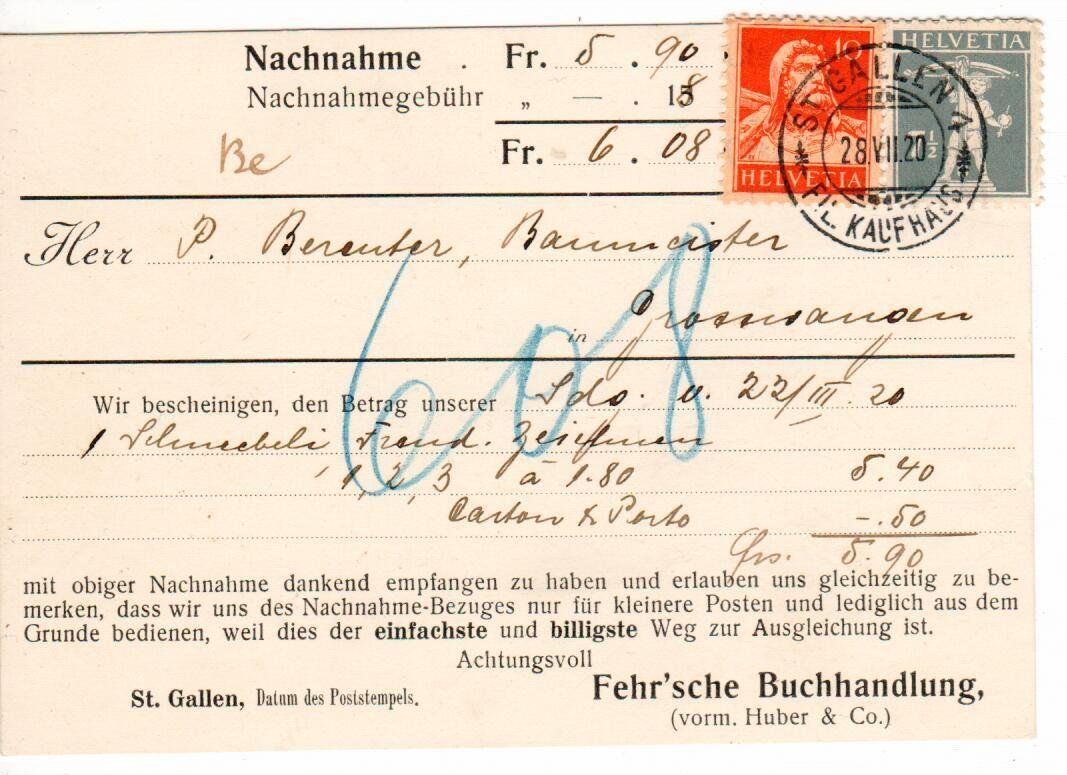 Nachnahme . Fr. 5 . 90
Nachnahmegebühr „ — . 18
Fr. 6 . 08
Be
10
HELVETIA
HELVETIA
7½
ST. GALLEN 1
28.VII.20
FIL. KAUFHAUS
Herr P. Bereuter, Baumeister
in Grosswangen
608
Wir bescheinigen, den Betrag unserer Sdg. v. 22/III 20
1 Schneebeli Freud. Zeichnen
1, 2, 3 à 1.80 5.40
Carton & Porto -.50
Frs. 5.90
mit obiger Nachnahme dankend empfangen zu haben und erlauben uns gleichzeitig zu be-
merken, dass wir uns des Nachnahme-Bezuges nur für kleinere Posten und lediglich aus dem
Grunde bedienen, weil dies der einfachste und billigste Weg zur Ausgleichung ist.
Achtungsvoll
St. Gallen, Datum des Poststempels.
Fehr'sche Buchhandlung,
(vorm. Huber & Co.)